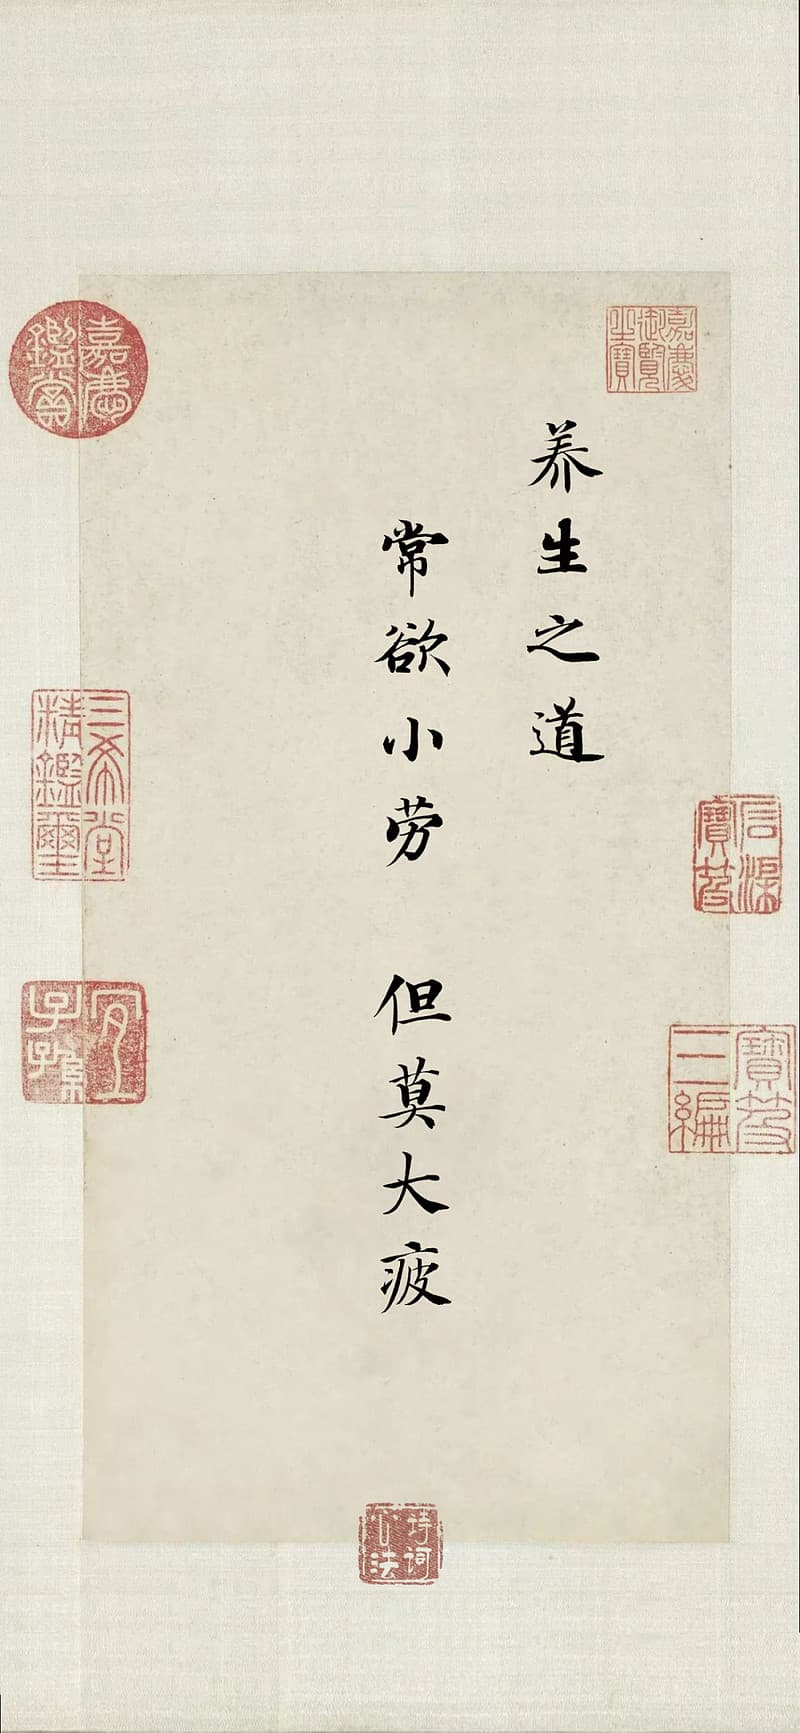 养生之道
常欲小劳 但莫大疲
嘉庆御览之宝
嘉庆鉴赏
三希堂精鉴玺
宜子孙
石渠宝笈
宝笈三编
诗词心法